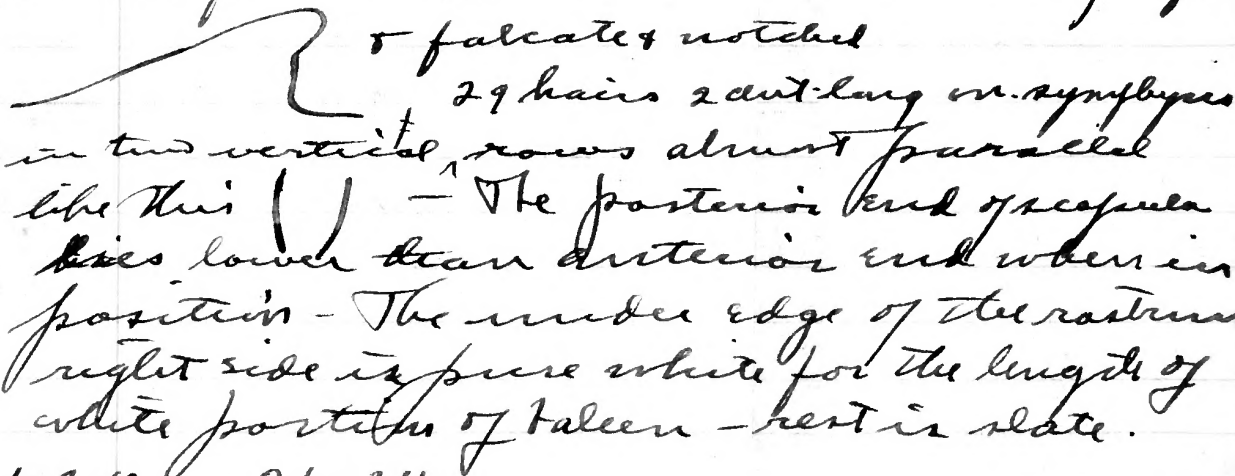 & falcate & notched
29 hairs 2 cut long on symphysis
in two vertical rows almost parallel
like this ( ) - The posterior end of scapula
lies lower than anterior end when in
position - The under edge of the rostrum
right side is pure white for the length of
white portion of baleen - rest is slate.